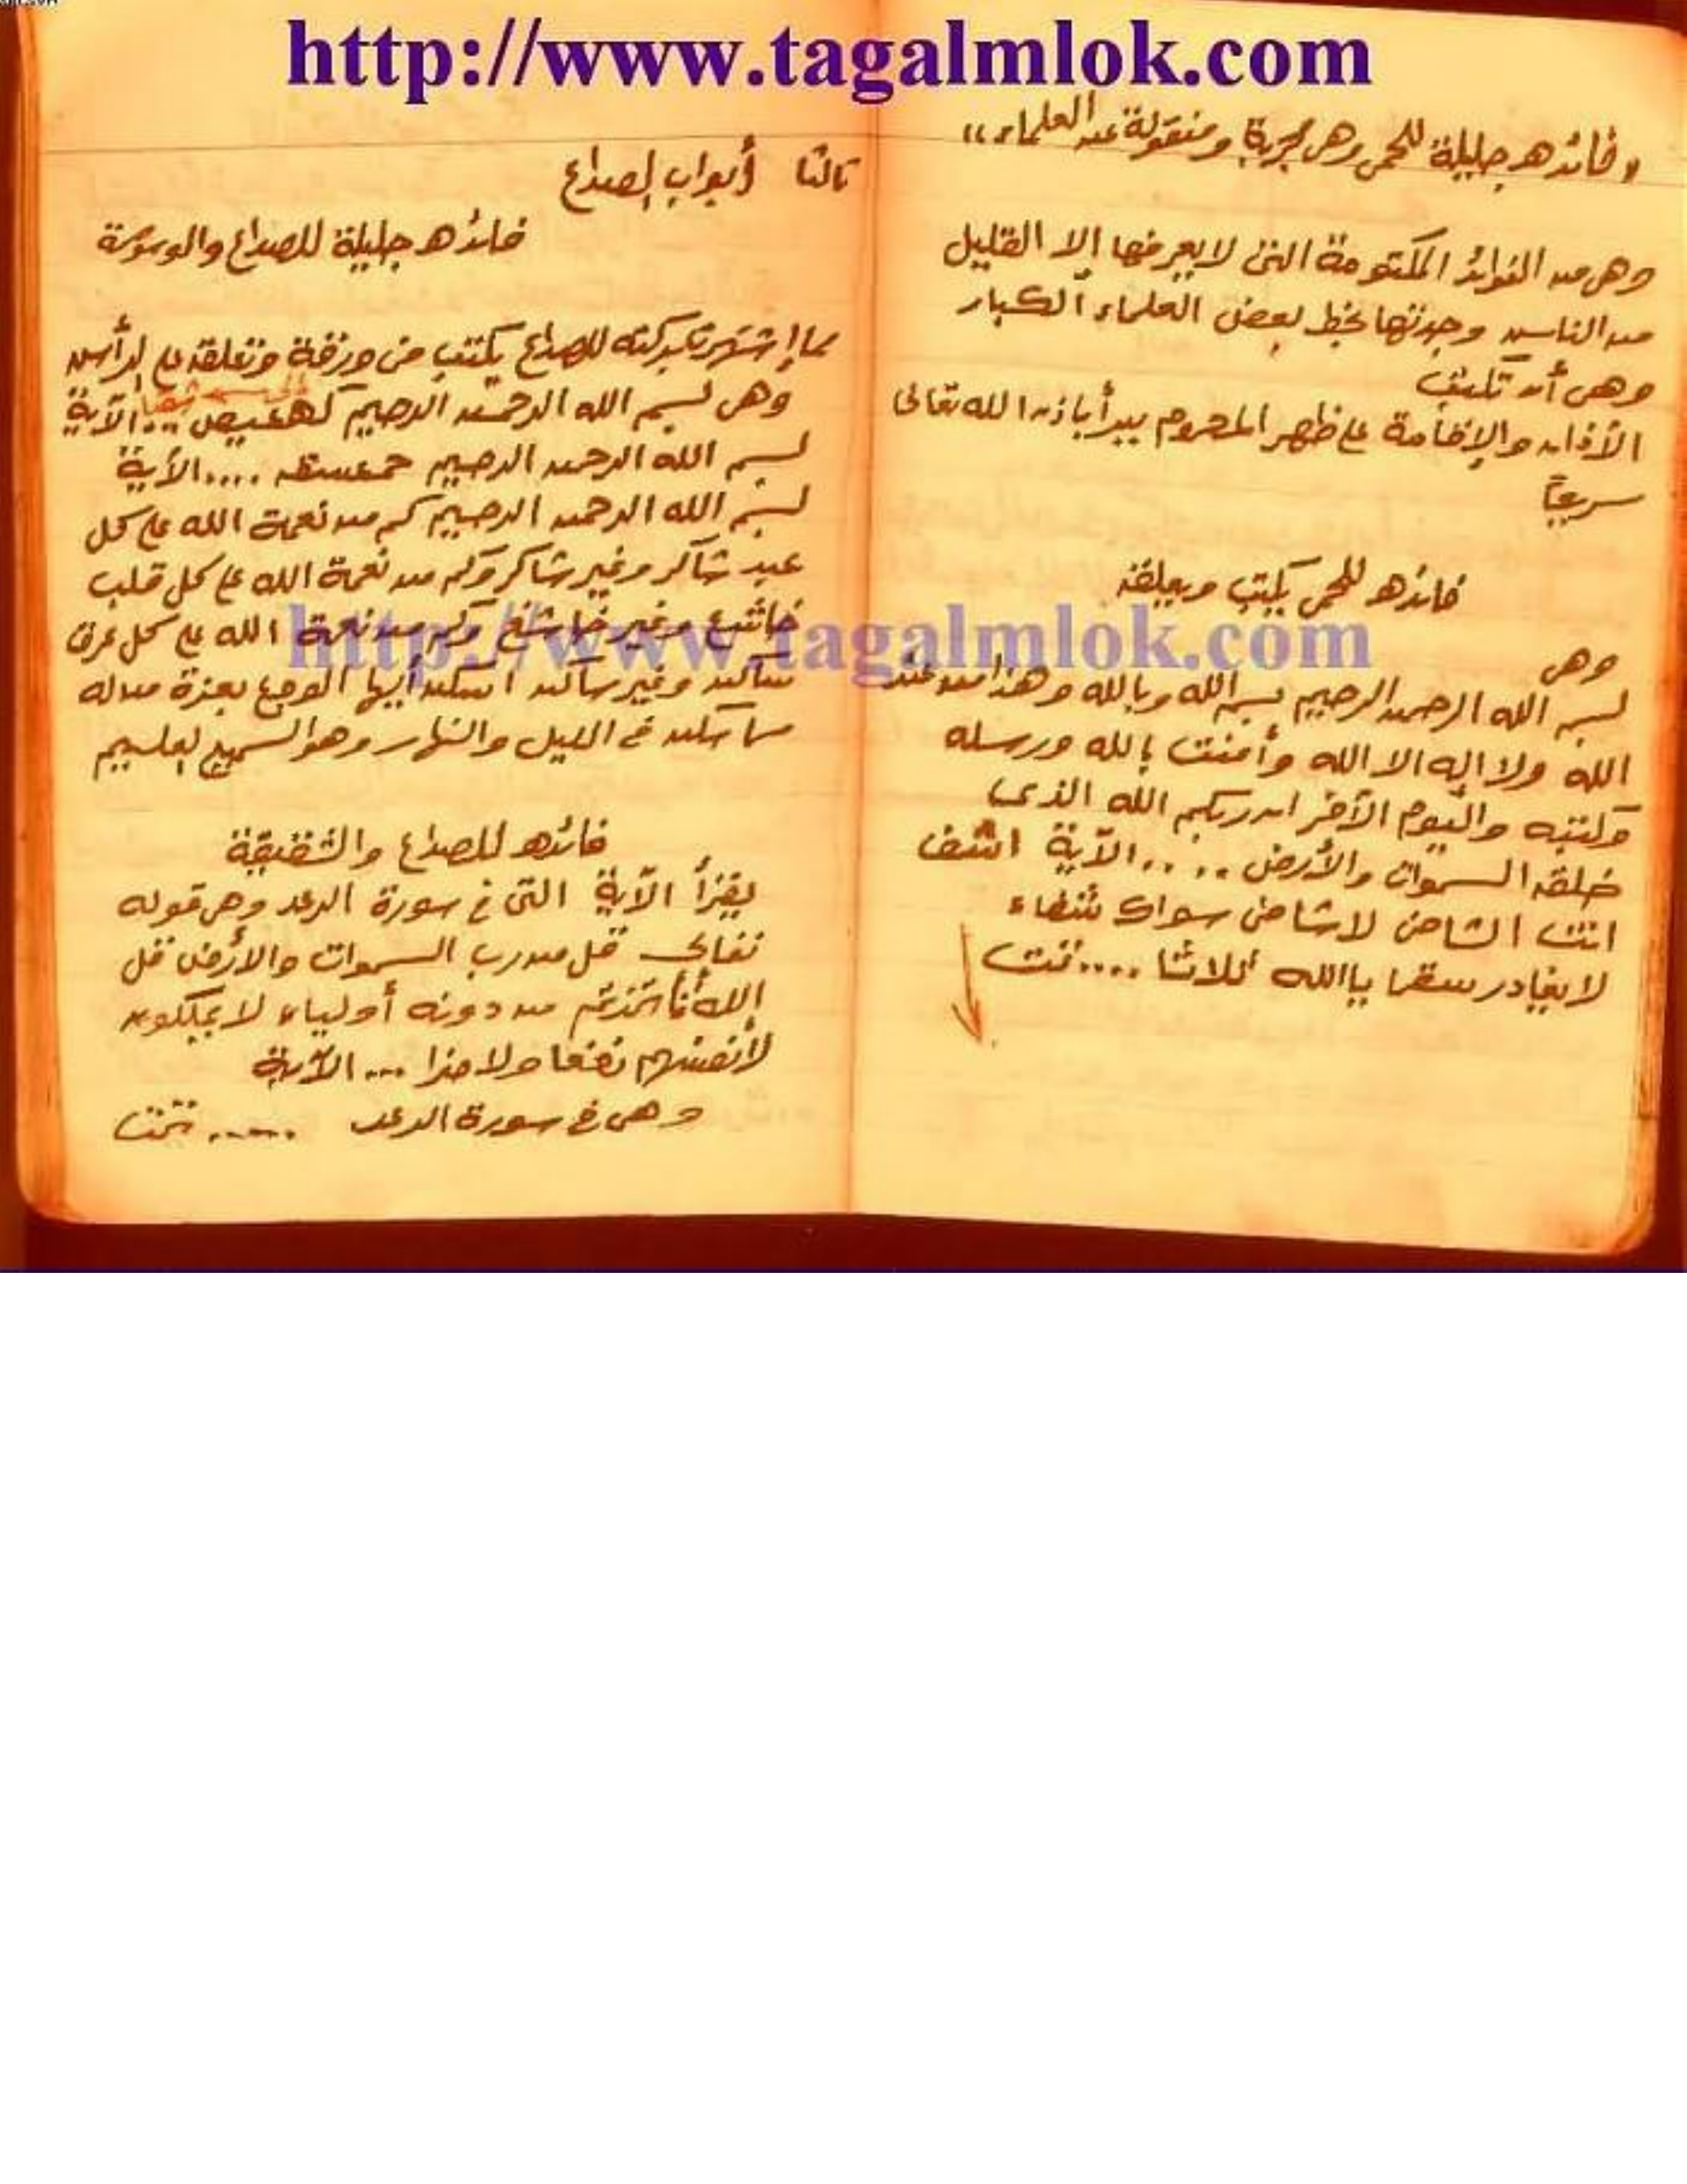 http://www.tagalmlok.com
«فائده جليلة للحمى وهى مجربة ومنقولة عن العلماء»
وهى من الفوائد المكتومة التى لا يعرفها إلا القليل
من الناس وجدتها بخط بعض العلماء الكبار
وهى أن تكتب
الأذان والإقامة على ظهر المحموم يبرأ باذن الله تعالى
سريعاً
فائده للحمى يكتب ويعلقه
وهى
بسم الله الرحمن الرحيم بسم الله وبالله وهذا من عند
الله ولا إله الا الله وأمنت بالله ورسله
وكتبه واليوم الآخر ان ربكم الله الذى
خلق السموات والأرض .... الآية اشف
انت الشافى لا شافى سواك شفاء
لا يغادر سقما ياالله ثلاثا .... تمت
ثالثا أبواب الصداع
فائده جليلة للصداع والوسوسة
مما إشتهر بركته للصداع يكتب فى ورقة وتعلقه على الرأس
وهى بسم الله الرحمن الرحيم كهعيص ... الآية
بسم الله الرحمن الرحيم حمعسق .... الأية
بسم الله الرحمن الرحيم كم من نعمة الله على كل
عبد شاكر وغير شاكر وكم من نعمة الله على كل قلب
خاشع وغير خاشع وكم من نعمة الله على كل عرق
ساكن وغير ساكن اسكن أيها الوجع بعزة من له
ما سكن فى الليل والنهار وهو السميع العليم
http://www.tagalmlok.com
فائده للصداع والشقيقة
يقرأ الآية التى فى سورة الرعد وهى قوله
تعالى قل من رب السموات والأرض قل
الله أفاتخذتم من دونه أولياء لا يملكون
لأنفسهم نفعا ولا ضرا ... الآية
وهى فى سورة الرعد ..... تمت